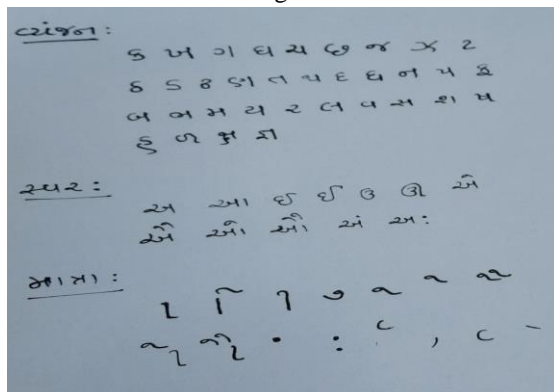 વ્યંજન :
ક ખ ગ ઘ ચ છ જ ઝ ટ
ઠ ડ ઢ ણ ત થ દ ધ ન પ ફ
બ ભ મ ય ર લ વ સ શ ષ
હ ળ ક્ષ જ્ઞ
સ્વર :
અ આ ઇ ઈ ઉ ઊ એ
ઐ ઓ ઔ અં અઃ
માત્રા :